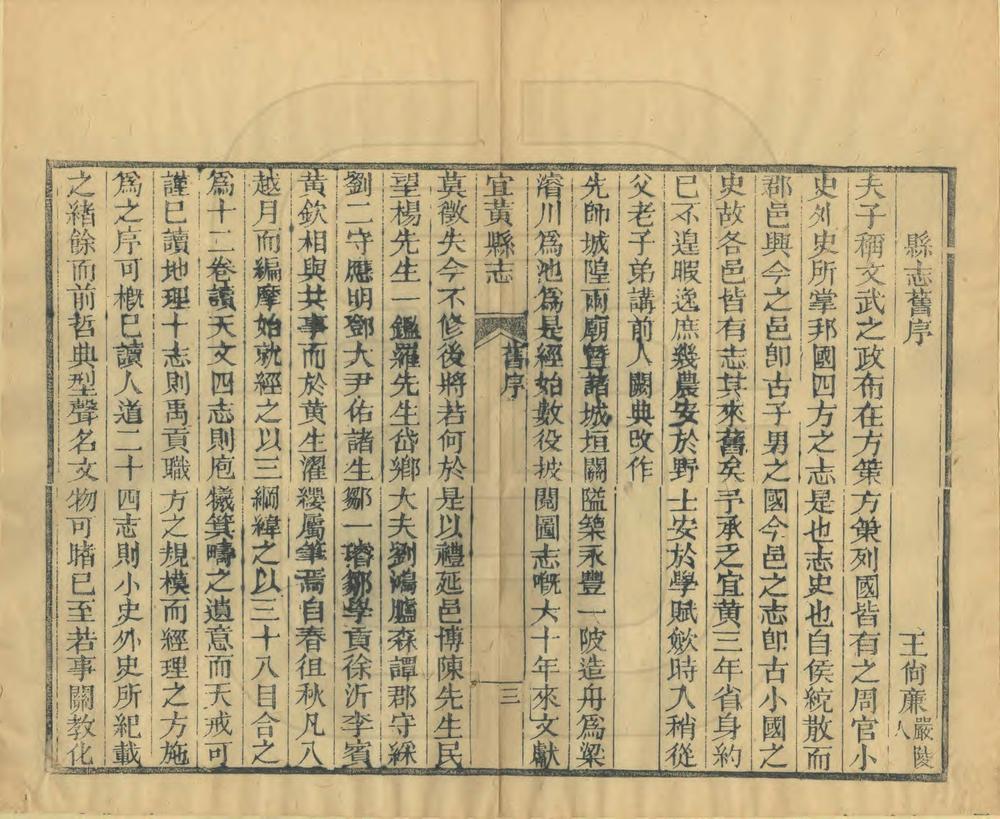 縣志舊序
王尙廉嚴陵人
夫子稱文武之政布在方策方策列國皆有之周官小
史外史所掌邦國四方之志是也志史也自侯綂散而
郡邑興今之邑卽古子男之國今邑之志卽古小國之
史故各邑皆有志其來舊矣予承乏宜黄三年省身約
已不遑暇逸庶幾農安於野士安於學賦歛時入稍從
父老子弟講前人闕典改作
先師城隍兩廟曁諸城垣關隘築永豐一陂造舟爲梁
濬川爲池爲是經始數役披閱圖志嘅大十年來文獻
宜黃縣志
舊序
三
莫徵失今不修後將若何於是以禮延邑博陳先生民
望楊先生一鑑羅先生岱鄉大夫劉鴻臚森譚郡守綵
劉二守應明鄧大尹佑諸生鄒一璿鄒學貢徐沂李賓
黃欽相與共事而於黄生濯纓屬筆焉自春徂秋凡八
越月而編摩始就經之以三綱緯之以三十八目合之
爲十二卷讀天文四志則庖犧箕疇之遺意而天戒可
謹巳讀地理十志則禹貢職方之規模而經理之方施
爲之序可槪巳讀人道二十四志則小史外史所紀載
之緒餘而前哲典型聲名文物可睹巳至若事關教化